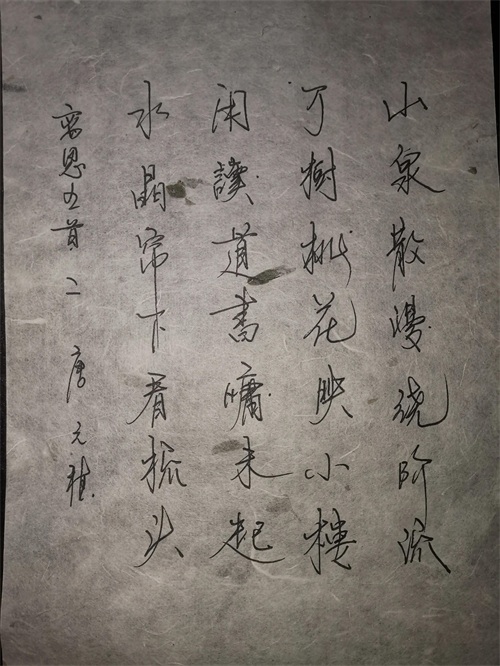 山泉散漫绕阶流
万樹桃花映小樓
闲讀道書慵未起
水晶帘下看梳头
离思五首 二 唐 元稹